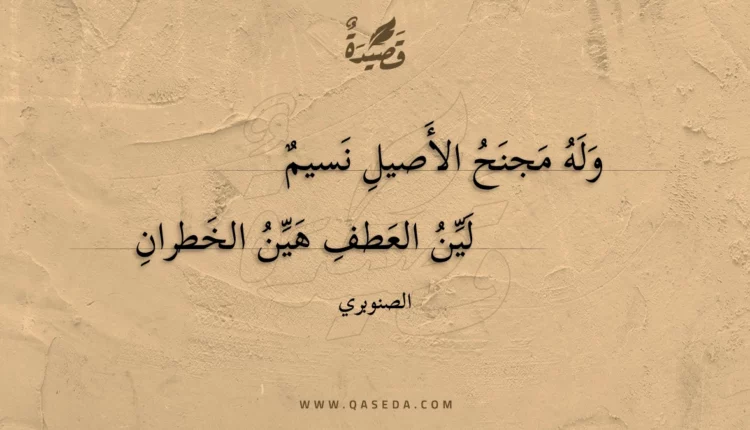 قَصِيدَةٌ
وَلَهُ مَجنَحُ الأَصيلِ نَسيمٌ
لَيِّنُ العَطفِ هَيِّنُ الخَطرانِ
الصنوبري
WWW.QASEDA.COM